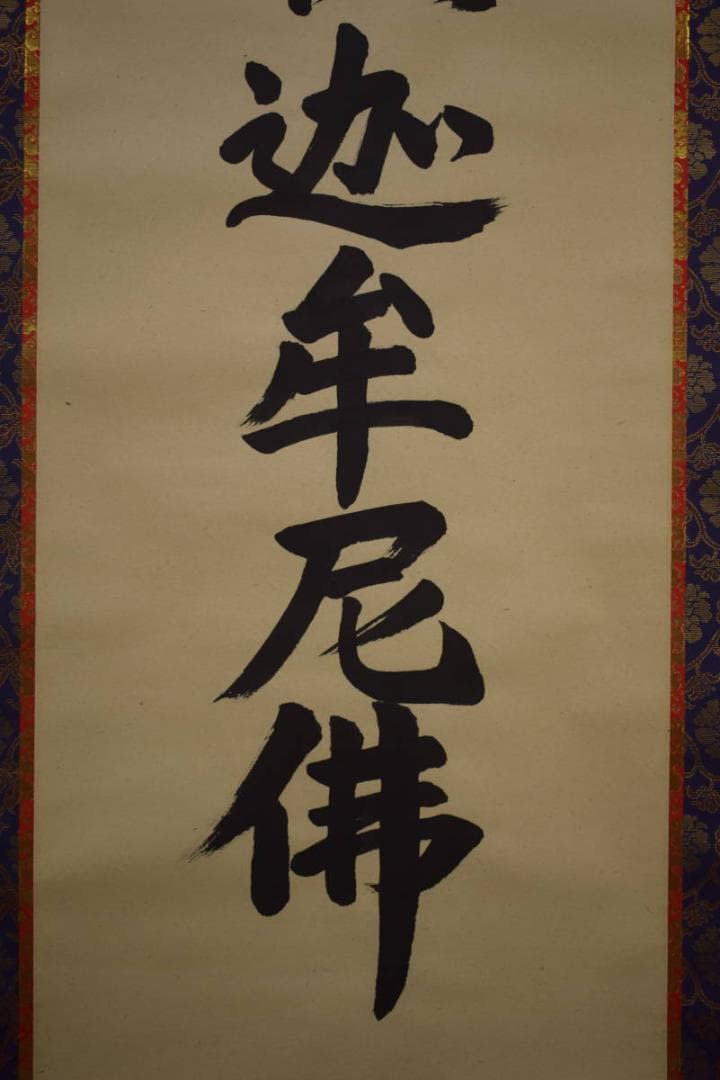 迦牟尼佛